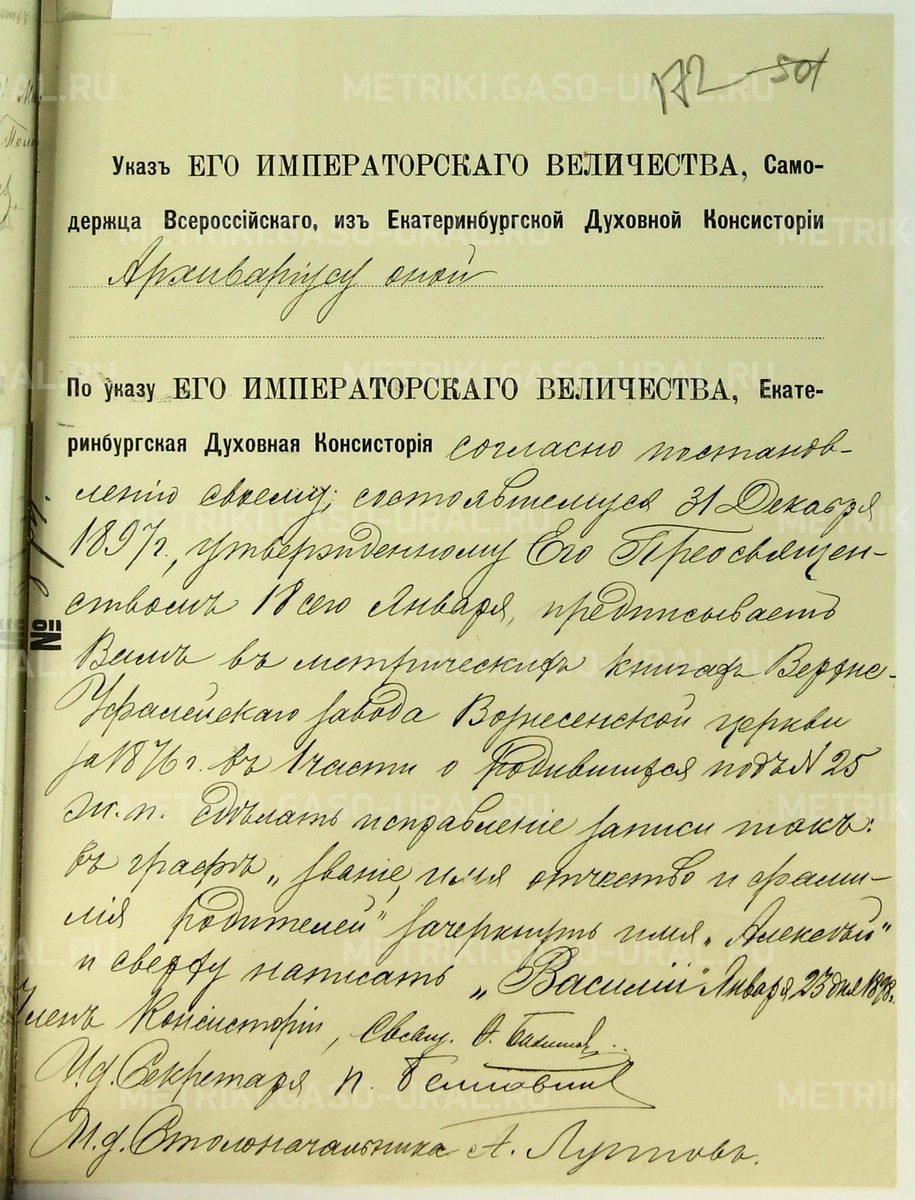 172 501
Указъ ЕГО ИМПЕРАТОРСКАГО ВЕЛИЧЕСТВА, Само-
держца Всероссійскаго, изъ Екатеринбургской Духовной Консисторіи
Архиваріусу оной
По указу ЕГО ИМПЕРАТОРСКАГО ВЕЛИЧЕСТВА, Екате-
ринбургская Духовная Консисторія согласно постанов-
ленію своему, состоявшемуся 31 Декабря
1897 г., утвержденному Его Преосвящен-
ствомъ 18 сего Января, предписываетъ
№
Вамъ въ метрическихъ книгахъ Верхне-
Уфалейскаго завода Вознесенской церкви
за 1876 г. въ 1 части о родившихся подъ N 25
ж. п. сдѣлать исправленіе записи такъ:
въ графѣ „званіе, имя отчество и фами-
лія родителей" зачеркнуть имя „Алексѣй"
и сверху написать „Василій" Января 23 дня 1898 г.
Членъ Консисторіи, Свящ.
И. д. Секретаря П.
И. д. Столоначальника А.
METRIKI.GASO-URAL.RU